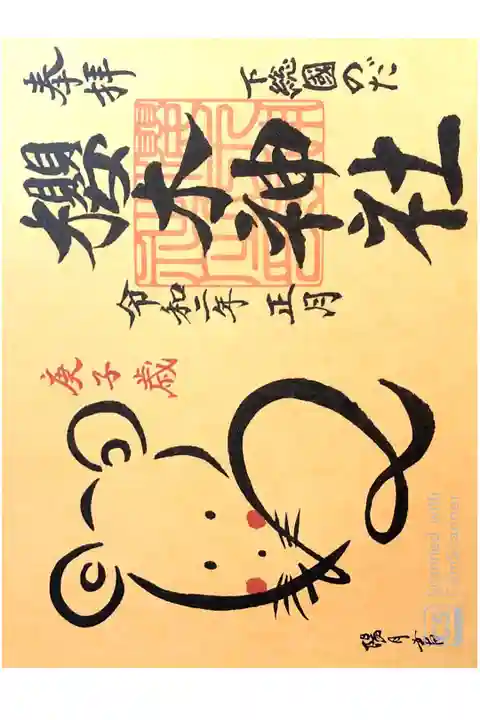 奉拝 下総國のだ
櫻木神社
令和二年 正月
庚子歳
CS Scanned with
CamScanner